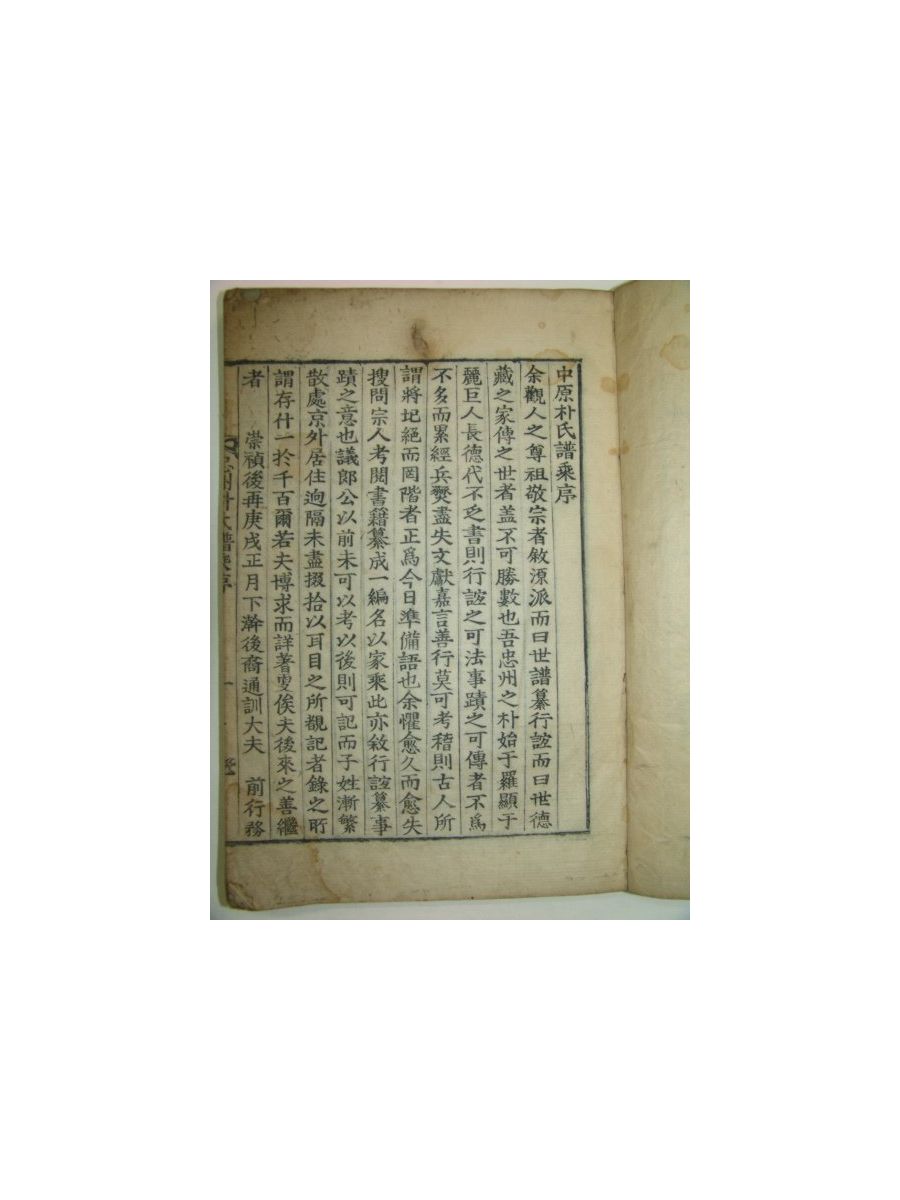 中原朴氏譜乘序
余觀人之尊祖敬宗者敘源派而曰世譜纂行誼而曰世德
藏之家傳之世者盖不可勝數也吾忠州之朴始于羅顯于
麗巨人長德代不乏書則行誼之可法事蹟之可傳者不爲
不多而累經兵燹盡失文獻嘉言善行莫可考稽則古人所
謂將圮絕而罔階者正爲今日準備語也余懼愈久而愈失
搜問宗人考閱書籍纂成一編名以家乘此亦敘行誼纂事
蹟之意也議郎公以前未可以考以後則可記而子姓漸繁
散處京外居住逈隔未盡掇拾以耳目之所覩記者錄之所
謂存什一於千百爾若夫博求而詳著叓俟夫後來之善繼
者 崇禎後再庚戌正月下澣後裔通訓大夫 前行務
忠州朴氏譜乘序 一